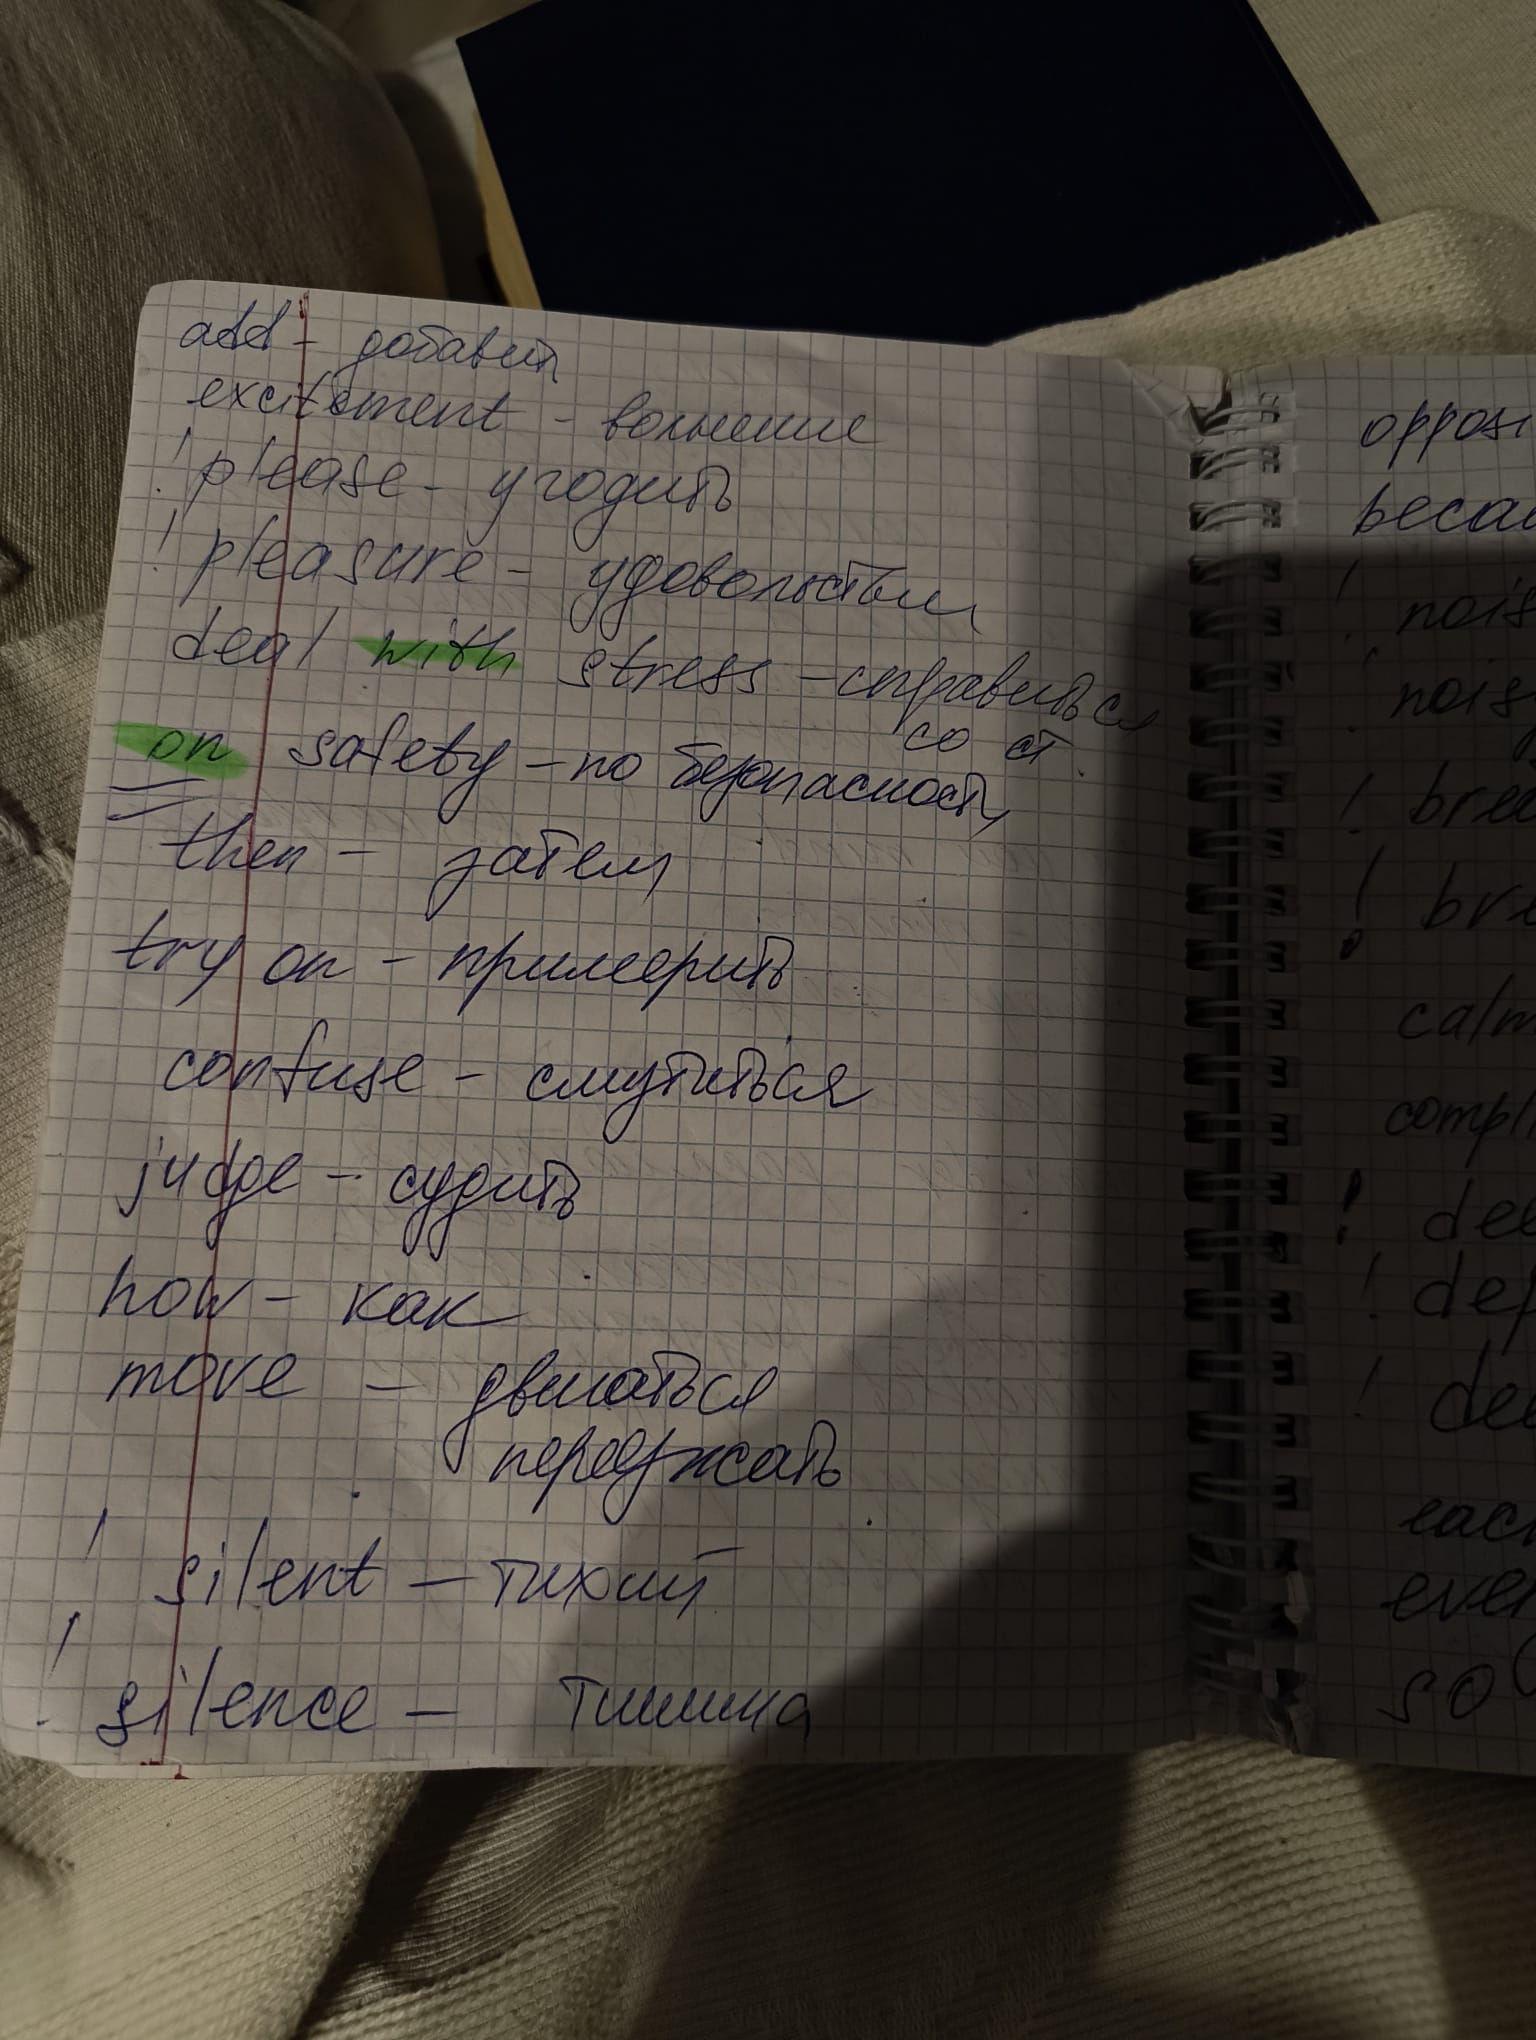 add - добавить
excitement - волнение
! please - угодить
! pleasure - удовольствие
deal with stress - справиться
со ст.
on safety - по безопасности
then - затем
try on - примерить
confuse - смутиться
judge - судить
how - как
move - двигаться
переезжать
! silent - тихий
! silence - тишина
opposi
becau
! nois
! nois
! brea
! bre
calm
compl
! de
! def
! de
each
ever
so